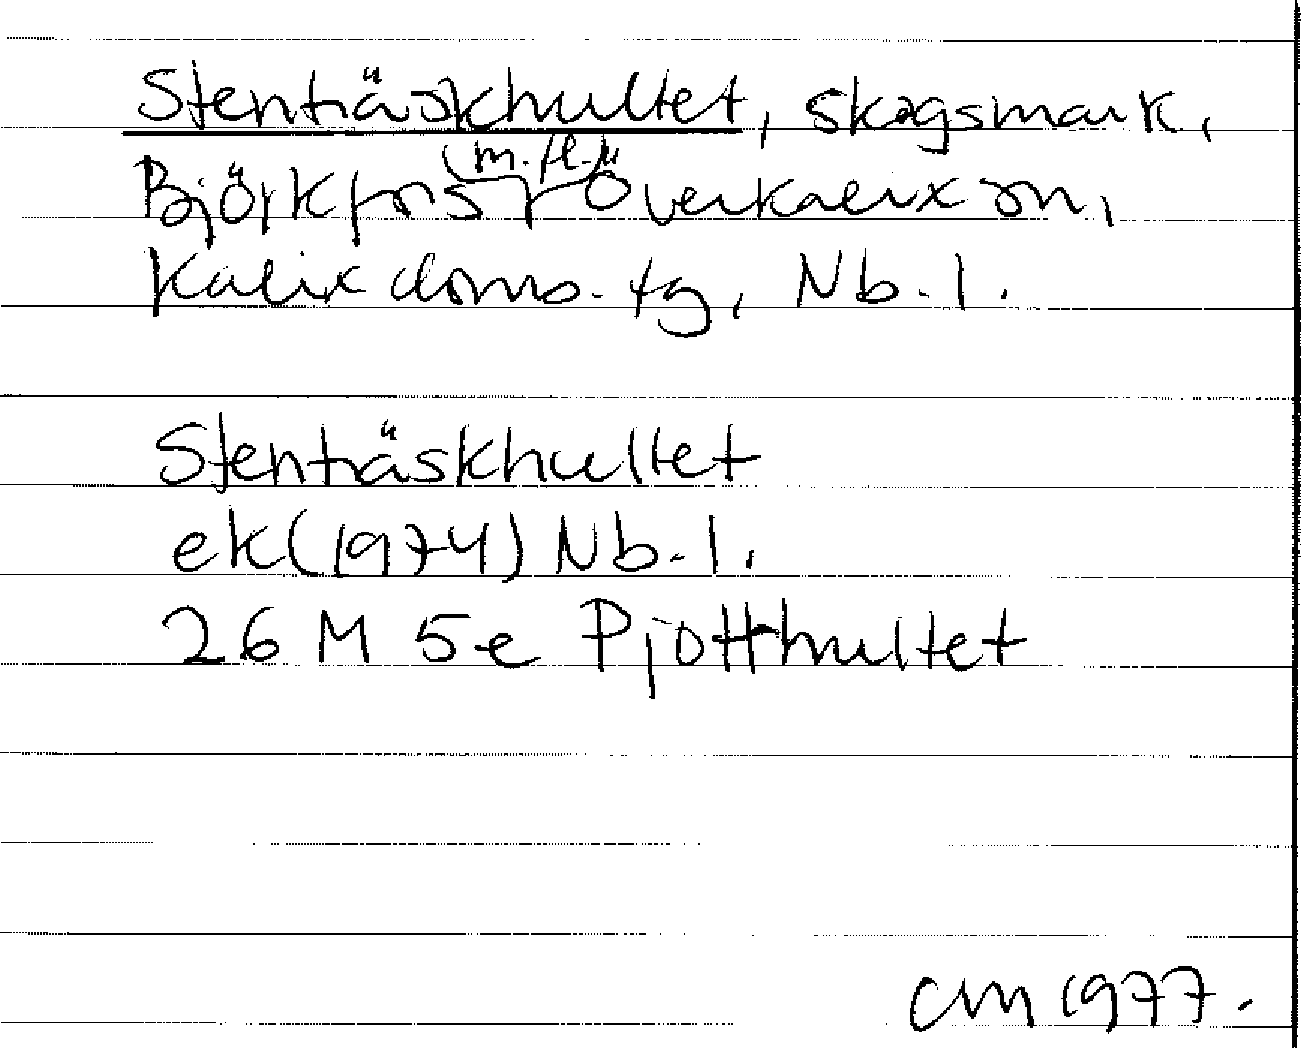 Stenträskhultet, skogsmark,
Björkfors (m.fl.), Överkalix sn,
Kalix doms. tg, Nb. l.
Stenträskhultet
ek (1974) Nb. l.
26 M 5e Pjotthultet
CM 1977.